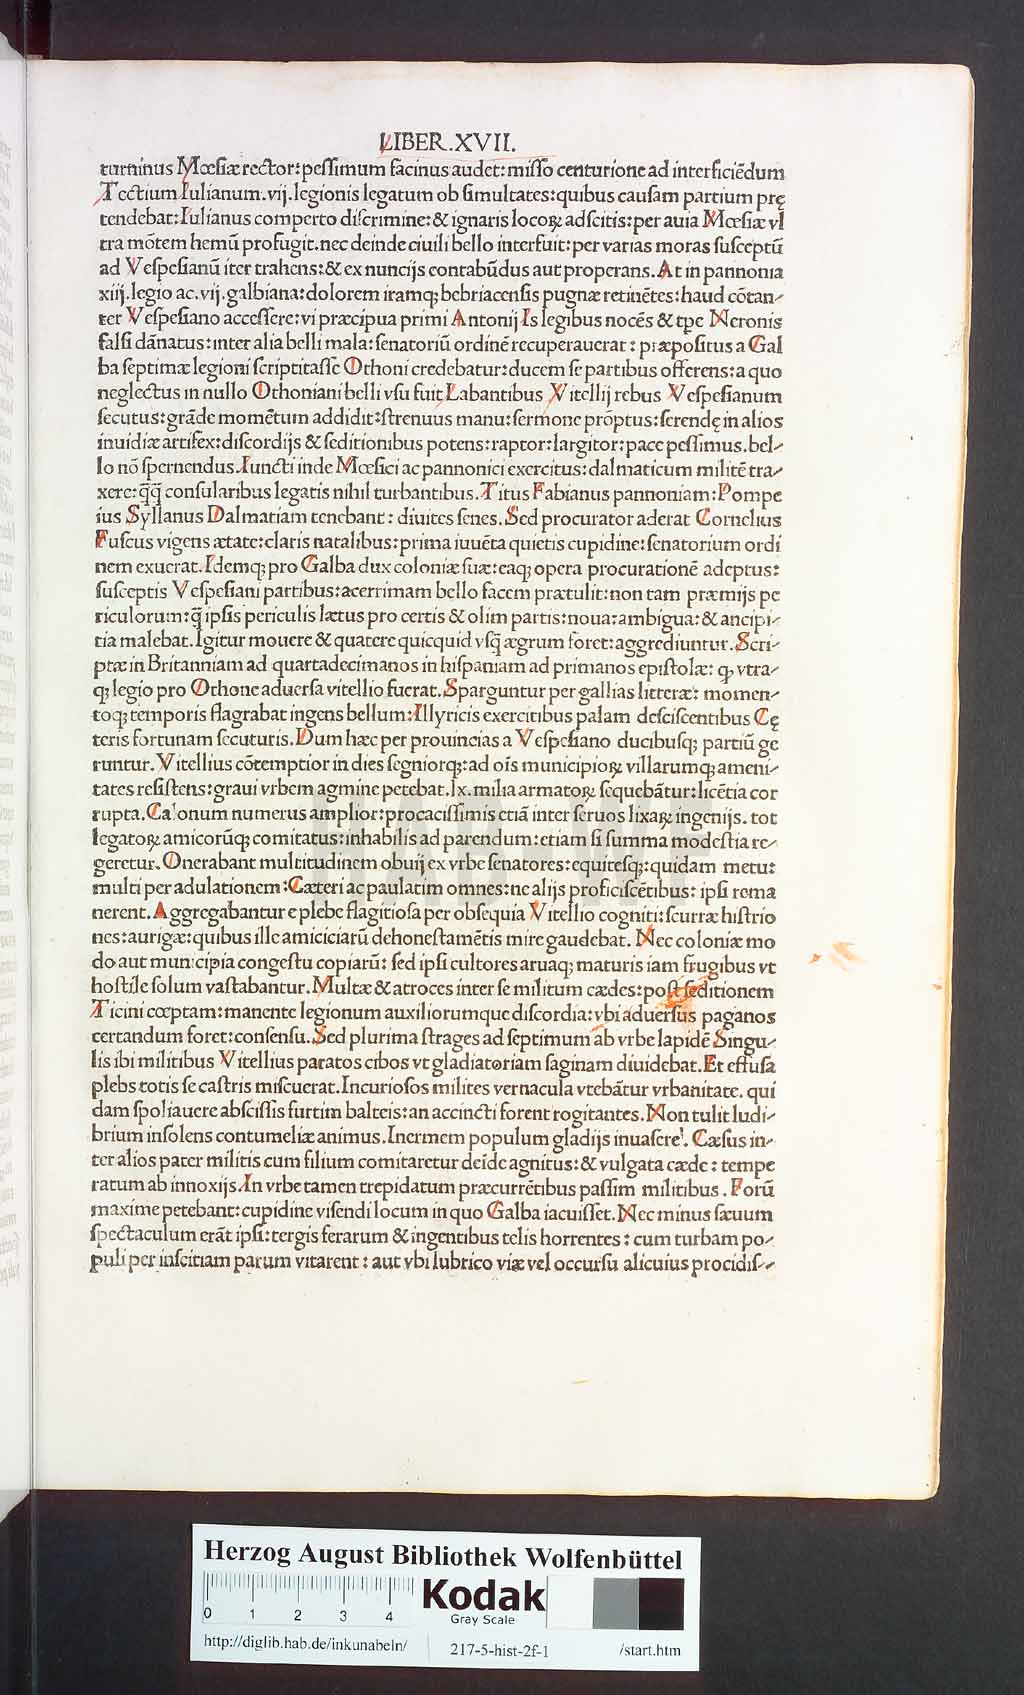 LIBER.XVII.
turninus Mœsiæ rector: pessimum facinus audet: misso centurione ad interficiēdum
Tectium Iulianum. vij. legionis legatum ob simultates: quibus causam partium prę
tendebat: Iulianus comperto discrimine: & ignaris locoꝝ adscitis: per auia Mœsiæ vl
tra mōtem hemū profugit. nec deinde ciuili bello interfuit: per varias moras susceptū
ad Vespesianū iter trahens: & ex nuncijs contabūdus aut properans. At in pannonia
xiij. legio ac. vij. galbiana: dolorem iramq; bebriacensis pugnæ retinētes: haud cōtan-
ter Vespesiano accessere: vi præcipua primi Antonij Is legibus nocēs & tpe Neronis
falsi dānatus: inter alia belli mala: senatoriū ordinē recuperauerat: præpositus a Gal
ba septimæ legioni scriptitasse Othoni credebatur: ducem se partibus offerens: a quo
neglectus in nullo Othoniani belli vsu fuit Labantibus Vitellij rebus Vespesianum
secutus: grāde momētum addidit: strenuus manu: sermone prōptus: serendę in alios
inuidiæ artifex: discordijs & seditionibus potens: raptor: largitor: pace pessimus. bel-
lo nō spernendus. Iuncti inde Mœsici ac pannonici exercitus: dalmaticum militē tra-
xere: q̄q̄ consularibus legatis nihil turbantibus. Titus Fabianus pannoniam: Pompe
ius Syllanus Dalmatiam tenebant: diuites senes. Sed procurator aderat Cornelius
Fuscus vigens ætate: claris natalibus: prima iuuēta quietis cupidine: senatorium ordi
nem exuerat. Idemq; pro Galba dux coloniæ suæ: eaq; opera procurationē adeptus:
susceptis Vespesiani partibus: acerrimam bello facem prætulit: non tam præmijs pe
riculorum: q̄ ipsis periculis lætus pro certis & olim partis: noua: ambigua: & ancipi-
tia malebat. Igitur mouere & quatere quicquid vsq̄ ægrum foret: aggrediuntur. Scri-
ptæ in Britanniam ad quartadecimanos in hispaniam ad primanos epistolæ: q; vtra-
q; legio pro Othone aduersa vitellio fuerat. Sparguntur per gallias litteræ: momen-
toq; temporis flagrabat ingens bellum: Illyricis exercitibus palam desciscentibus Cę
teris fortunam secuturis. Dum hæc per prouincias a Vespesiano ducibusq; partiū ge
runtur. Vitellius cōtemptior in dies segniorq;: ad oīs municipioꝝ villarumq; ameni-
tates resistens: graui vrbem agmine petebat. lx. milia armatoꝝ sequebātur: licētia cor
rupta. Calonum numerus amplior: procacissimis etiā inter seruos lixaꝝ ingenijs. tot
legatoꝝ amicorūq; comitatus: inhabilis ad parendum: etiam si summa modestia re-
geretur. Onerabant multitudinem obuij ex vrbe senatores: equitesq;: quidam metu:
multi per adulationem: Cæteri ac paulatim omnes: ne alijs proficiscētibus: ipsi rema
nerent. Aggregabantur e plebe flagitiosa per obsequia Vitellio cogniti: scurræ histrio
nes: aurigæ: quibus ille amiciciarū dehonestamētis mire gaudebat. Nec coloniæ mo
do aut municipia congestu copiarū: sed ipsi cultores aruaq; maturis iam frugibus vt
hostile solum vastabantur. Multæ & atroces inter se militum cædes: post seditionem
Ticini cœptam: manente legionum auxiliorumque discordia: vbi aduersus paganos
certandum foret: consensu. Sed plurima strages ad septimum ab vrbe lapidē Singu-
lis ibi militibus Vitellius paratos cibos vt gladiatoriam saginam diuidebat. Et effusa
plebs totis se castris miscuerat. Incuriosos milites vernacula vtebātur vrbanitate. qui
dam spoliauere abscissis furtim balteis: an accincti forent rogitantes. Non tulit ludi-
brium insolens contumeliæ animus. Inermem populum gladijs inuasere. Cæsus in-
ter alios pater militis cum filium comitaretur deīde agnitus: & vulgata cæde: tempe
ratum ab innoxijs. In vrbe tamen trepidatum præcurrētibus passim militibus. Forū
maxime petebant: cupidine visendi locum in quo Galba iacuisset. Nec minus sæuum
spectaculum erāt ipsi: tergis ferarum & ingentibus telis horrentes: cum turbam po-
puli per inscitiam parum vitarent: aut vbi lubrico viæ vel occursu alicuius procidis-
HAB WF
Herzog August Bibliothek Wolfenbüttel
0 1 2 3 4
Kodak
Gray Scale
http://diglib.hab.de/inkunabeln/ 217-5-hist-2f-1 /start.htm